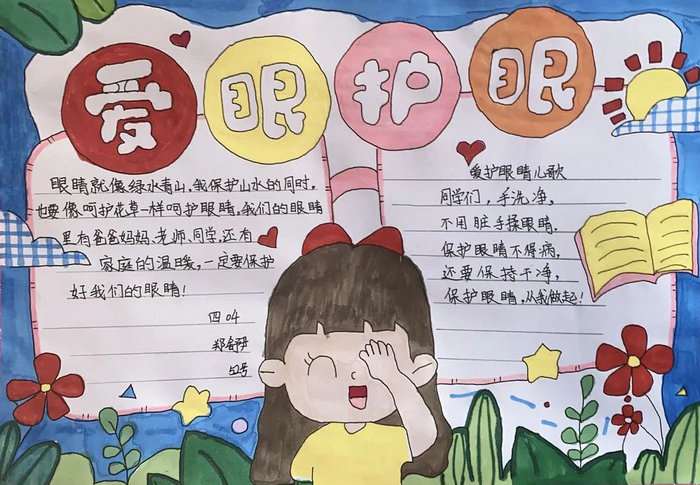 爱眼护眼
眼睛就像绿水青山,我保护山水的同时,
也要像呵护花草一样呵护眼睛,我们的眼睛
里有爸爸妈妈、老师、同学,还有
家庭的温暖,一定要保护
好我们的眼睛!
四04
52号
爱护眼睛儿歌
同学们,手洗净,
不用脏手揉眼睛,
保护眼睛不得病,
还要保持干净,
保护眼睛,从我做起!